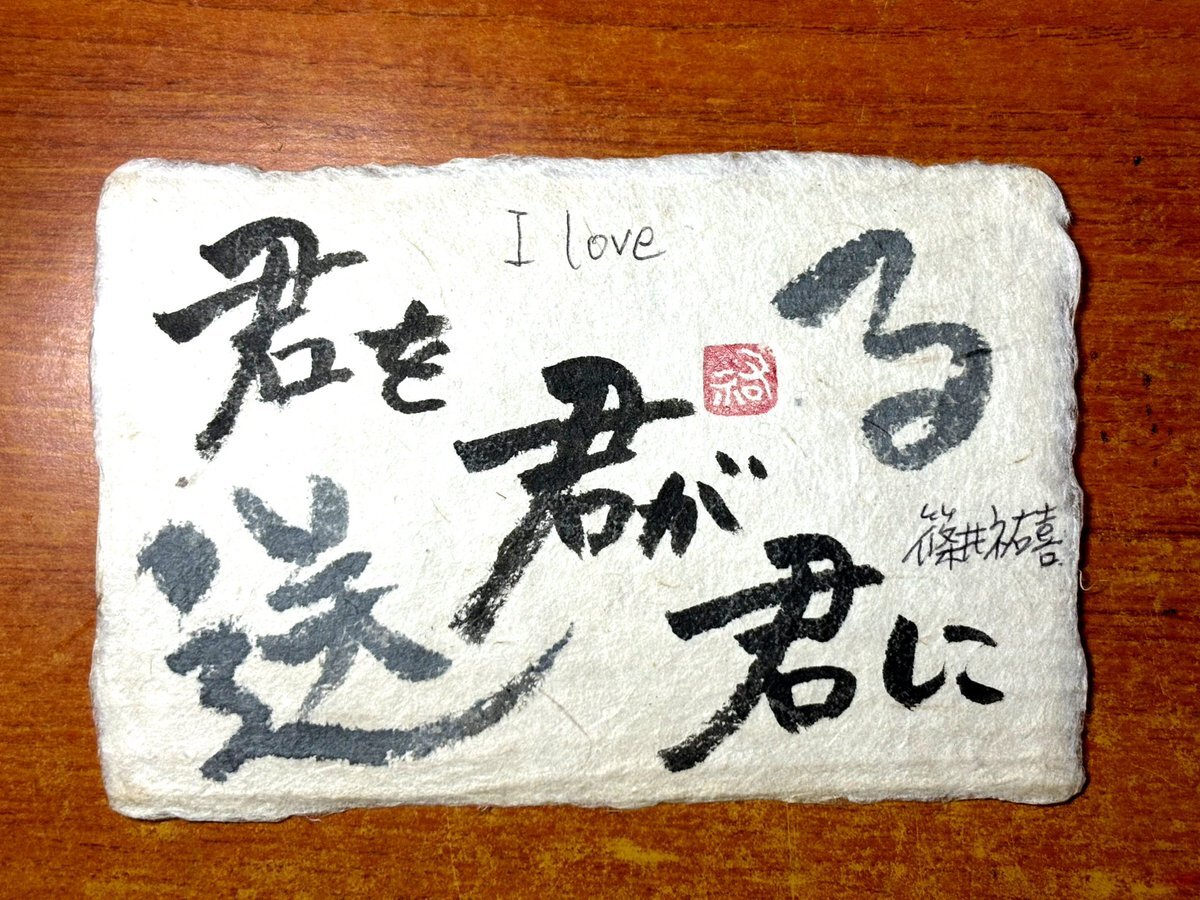 I love
君を
君が
君に
送る
祐
篠井祐喜